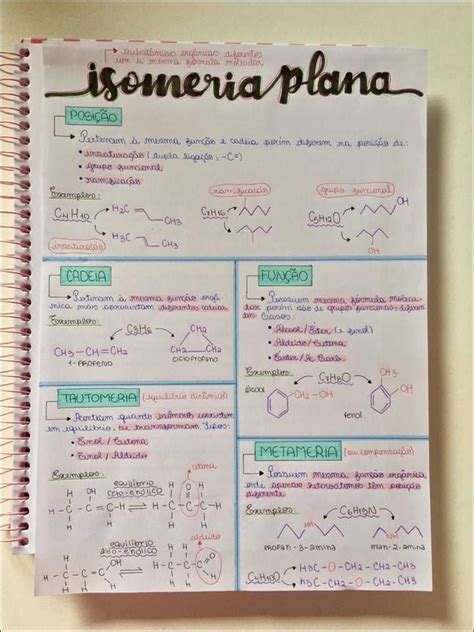 substâncias orgânicas diferentes
com a mesma fórmula molecular
isomeria plana
POSIÇÃO
Pertencem à mesma função e cadeia porém diferem na posição de:
• insaturação (dupla ligação, -C=)
• grupo funcional
• ramificação
Exemplos:
C4H10
H2C
CH3
H3C
CH3
insaturação
ramificação
C7H16
grupo funcional
C5H12O
OH
OH
CADEIA
Pertencem à mesma função orgânica mas apresentam diferentes cadeias
Exemplos:
C3H6
CH3-CH=CH2
1-PROPENO
CH2
H2C
CH2
CICLOPROPANO
FUNÇÃO
Possuem mesma fórmula molecular porém são de grupos funcionais diferentes
Casos:
• Álcool/Éter (e fenol)
• Aldeído/Cetona
• Éster/Ác. Carb.
Exemplos:
C7H8O
álcool
CH2-OH
CH3
OH
fenol
TAUTOMERIA (equilíbrio dinâmico)
Acontecem quando
em equilíbrio, ou transformam
Tipos:
• Enol/Cetona
• Enol/Aldeído
Exemplos:
cetona
equilíbrio
ceto-enólico
aldeído
equilíbrio
aldo-enólico
METAMERIA (ou compensação)
Possuem mesma função orgânica
onde apenas heteroátomos têm posição
diferente
Exemplos:
C6H15N
NH
NH
C4H10O
H3C-O-CH2-CH2-CH3
H3C-CH2-O-CH2-CH3